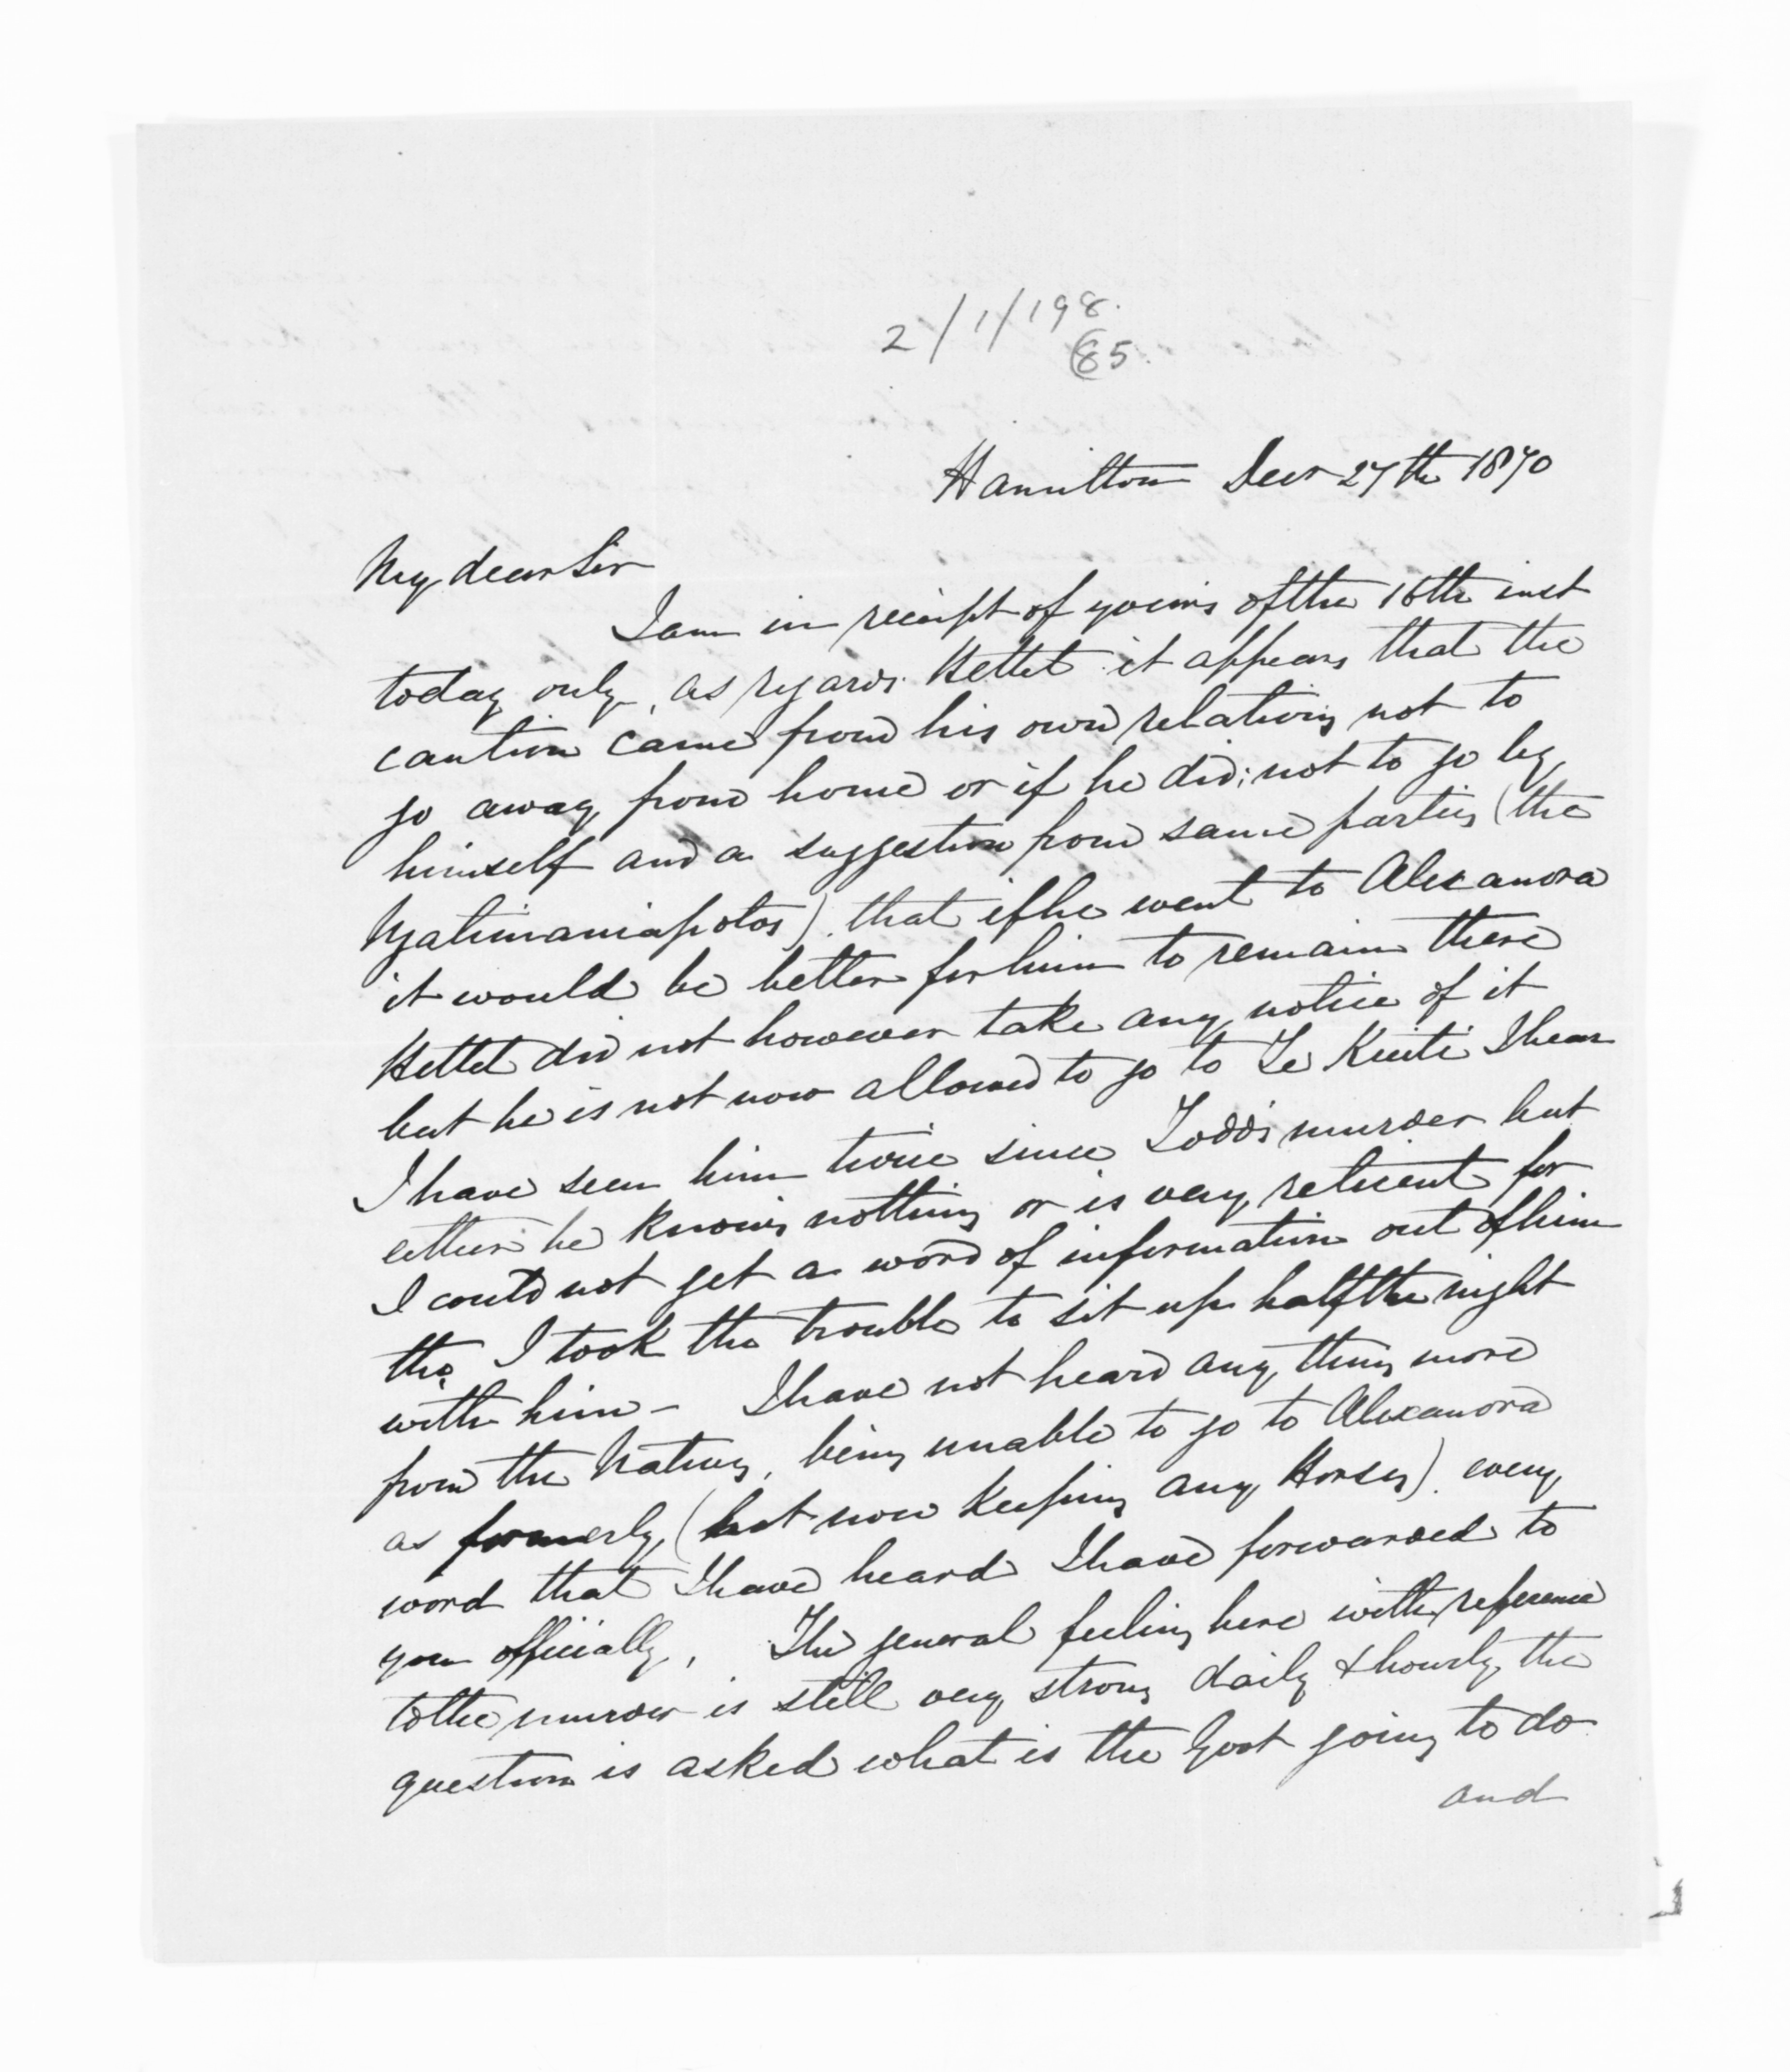 2/1/198.
85.
Hamilton Decr 27th 1870
My dear Sir
I am in receipt of yours of the 16th inst
today only, as regards Hettet it appears that the
caution came from his own relations not to
go away from home or if he did; not to go by
himself and a suggestion from same parties (the
Ngatimaniapotos). that if he went to Alexandra
it would be better for him to remain there
Hettet did not however take any notice of it
but he is not now allowed to go to Te Kuiti I hear
I have seen him twice since Todds murder but
either he knows nothing or is very reticent for
I could not get a word of information out of him
tho I took the trouble to sit up half the night
with him - I have not heard any thing more
from the Natives, being unable to go to Alexandra
as formerly, (not now keeping any Horses). every
word that I have heard I have forwarded to
you officially, The general feeling here with reference
to the murder is still very strong daily & hourly the
question is asked what is the Govt going to do
and